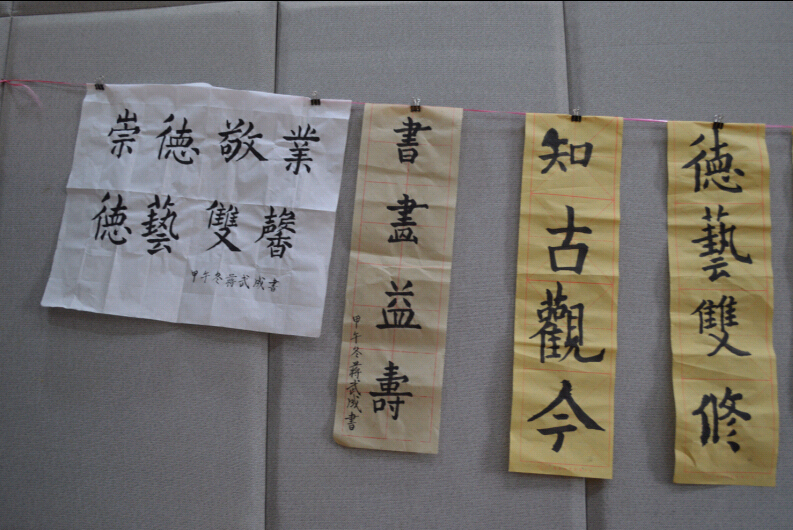 崇德敬業
德藝雙馨
甲午冬蔣武成書
書畫益壽
甲午冬蔣武成書
知古觀今
德藝雙修